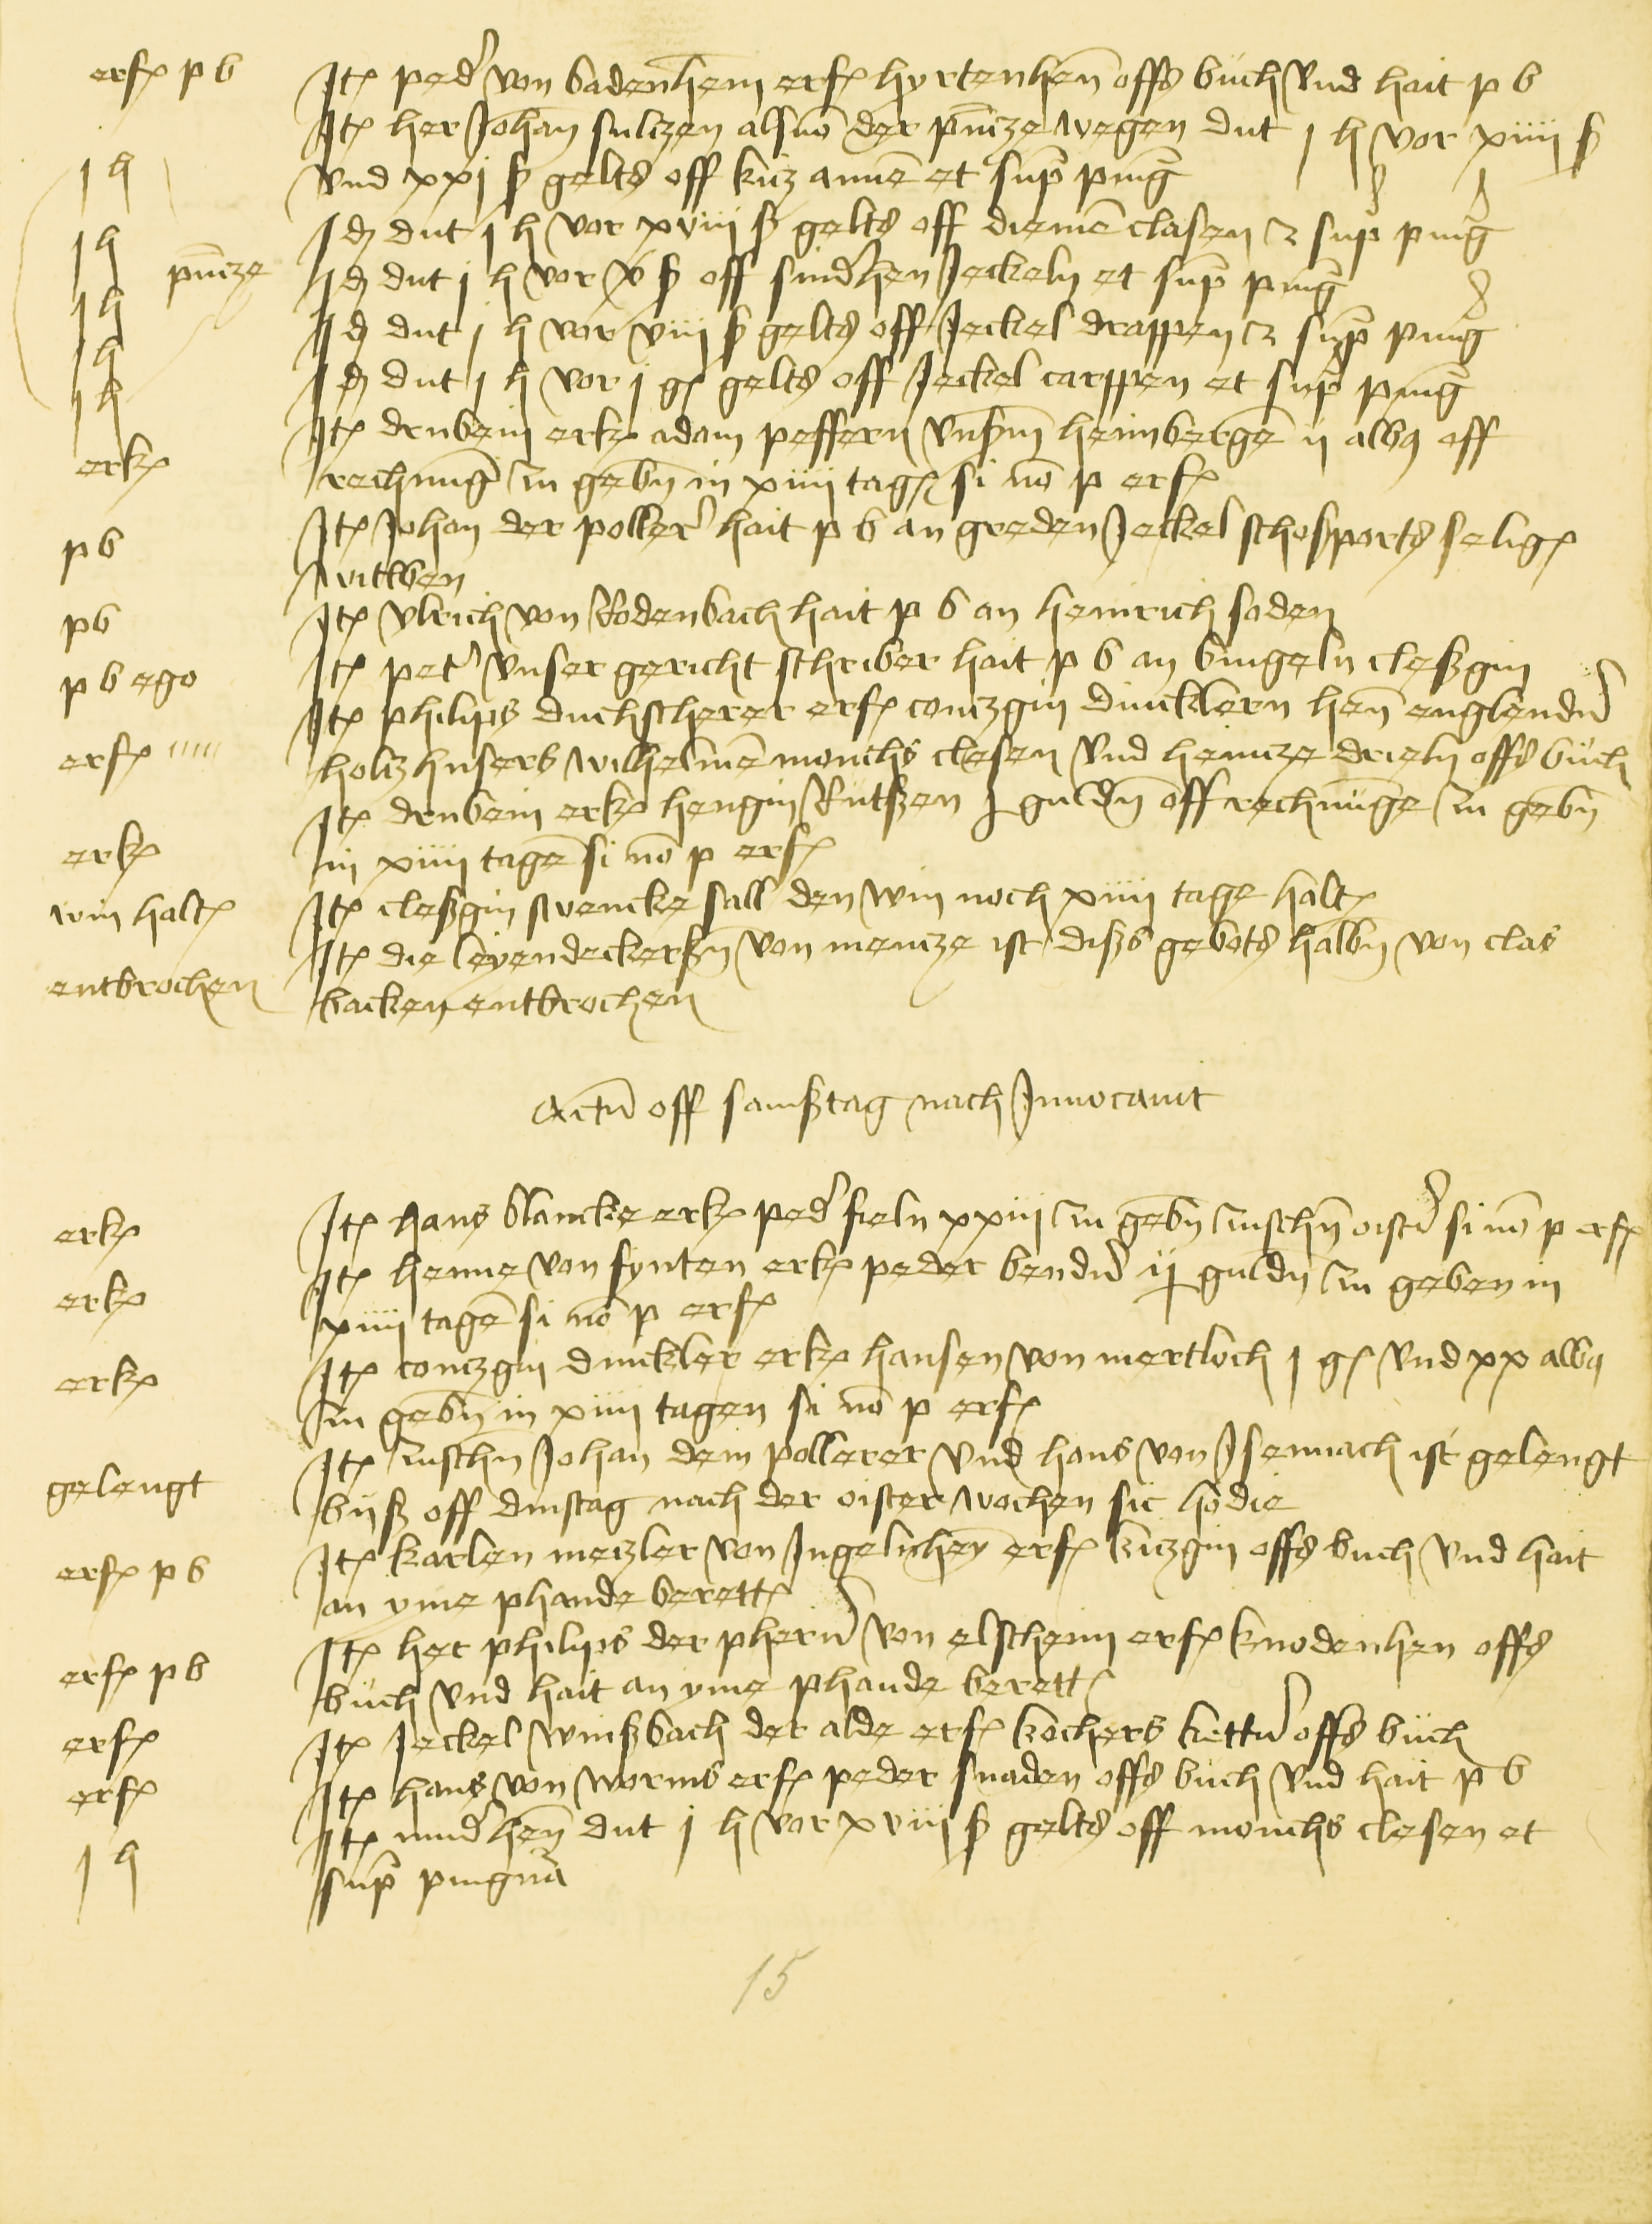 erf(e) p b
It(em) ped(er) von badenheim erf(e) hyrtenhen offs buch und hait p b
It(em) her Johan sultzen als von der p(re)ncze wegen dut j h vor xiiii ß
j h
und xxj ß gelts off kicz annen et sup(ra) ping(nora)
j h
Id(em) dut j h vor xviii ß gelts off diemen clasen et sup(ra) ping(nora)
pncze
j h
Id(em) dut j h vor xv ß off snid(er)hen Jeckeln et sup(ra) ping(nora)
j h
Id(em) dut j h vor viii ß gelts off Jeckel drappen et sup(ra) ping(nora)
j h
Id(em) dut j h vor j g(ulden) gelts off Jeckel carppen et sup(ra) ping(nora)
erk(ennt)
It(em) drubein erk(ennt) adam peffern unserm heimbergen ii alb(us) off
rechnung zu geben in xiiii tag(en) si no(n) p erf(e)
p b
It(em) Johan der pollerer hait p b an greden Jeckel schosports selig(en)
witwen
p b
It(em) ulrich von Rodenbach hait p b an heinrich soden
p b ego
It(em) pet(er) unser gericht schriber hait p b an bingeln cleßgin
erf(e) ιιιιι
It(em) philips duchscherer erf(e) conczgin duncklern hen englend(er)
holtzhusers wilhelmen monchs clesen und heincze drieln offs buch
erk(ennt)
It(em) drubein erk(ennt) hengin Rutßen j guld(e)n off rechnunge zu geb(e)n
in xiiii tagen si no(n) p erf(e)
win halt(en)
It(em) cleßgin swencke sall den win noch xiiii tage halt(en)
entbrochen
It(em) die leyendeckerß(e)n von mencze ist dißs gebots halb(e)n von clas
backen entbrochen
Actu(m) off samßtag nach Invocavit
erk(ennt)
It(em) hans blancke erk(ennt) ped(er) fieln xxiii zu geb(e)n zuschen oist(er) si no(n) p erf(e)
erk(ennt)
It(em) henne von synten erk(ennt) peder bend(er) ij guld(e)n zu geben in
xiiii tagen si no(n) p erf(e)
erk(ennt)
It(em) conczgin dunckler erk(ennt) hansen von mertloch j g(ulden) und xx alb(us)
zu geb(e)n in xiiii tagen si no(n) p erf(e)
gelengt
It(em) zusch(e)n Johan dem pollerer und hans von Isennach ist gelengt
biß off dinstag nach der oister wochen sic(ut) hodie
erf(e) p b
It(em) karlen meczler von Ingelnheym erf(e) kiczgin offs buch und hait
an yme phande berett(en)
erf(e) p b
It(em) her philips der pherr(er) von elsheim erf(e) knodenhen offs
buch und hait an yme phande berett(en)
erf(e)
It(em) Jeckel winßbach der alde erf(e) kochers kett(er) offs buch
erf(e)
It(em) hans von worms erf(e) peder snaden offs buch und hait p b
j h
It(em) mud(er)hen dut j h vor xviii ß gelts off monchs clesen et
sup(ra) pingn(or)a
15